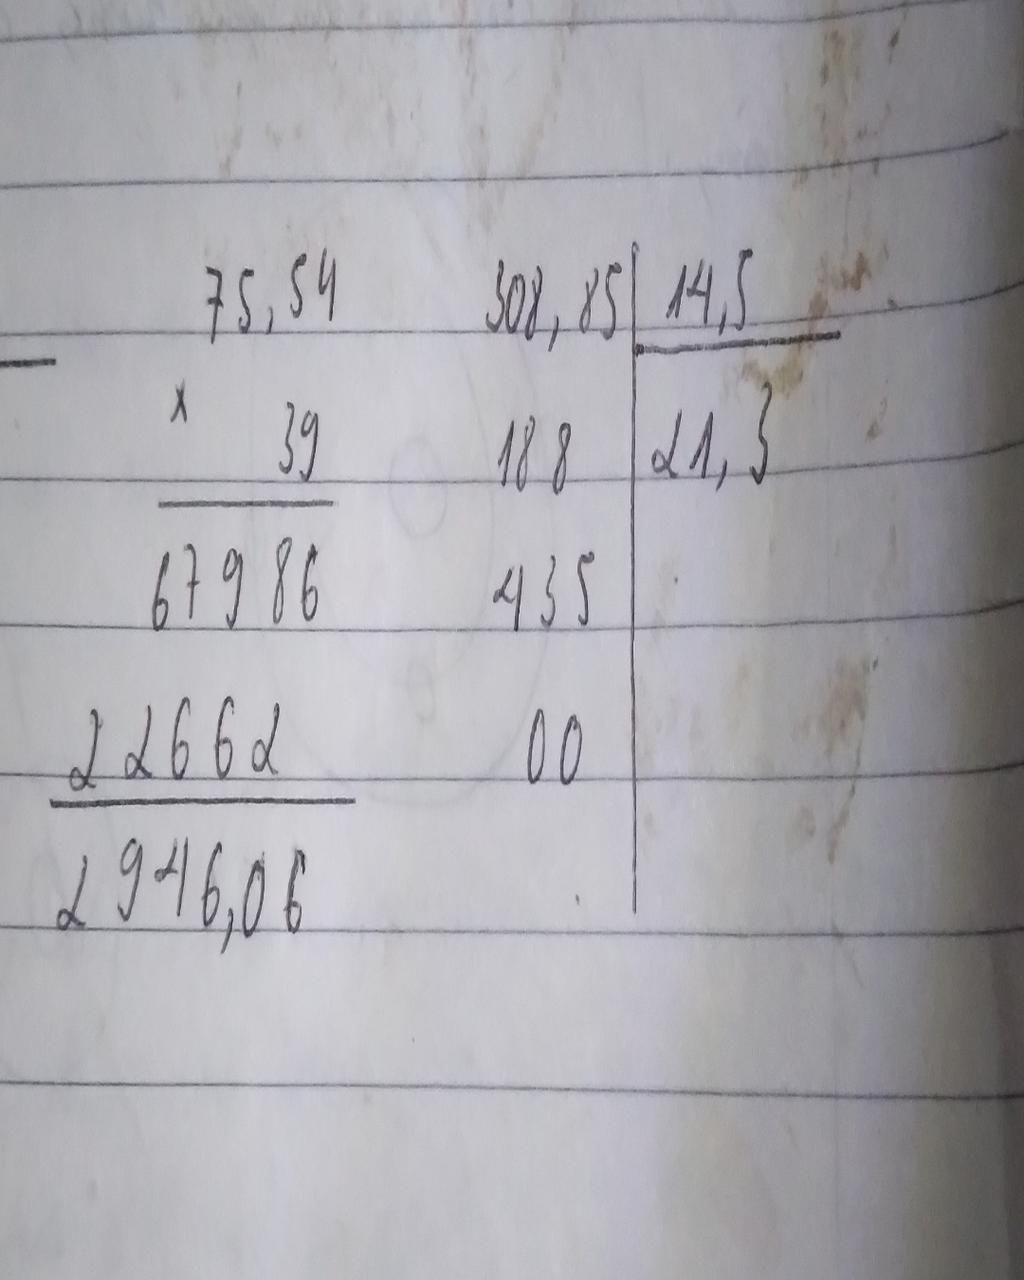 75,54 308,85 14,5
x 39 188 21,3
67986 435
22662 00
2946,06